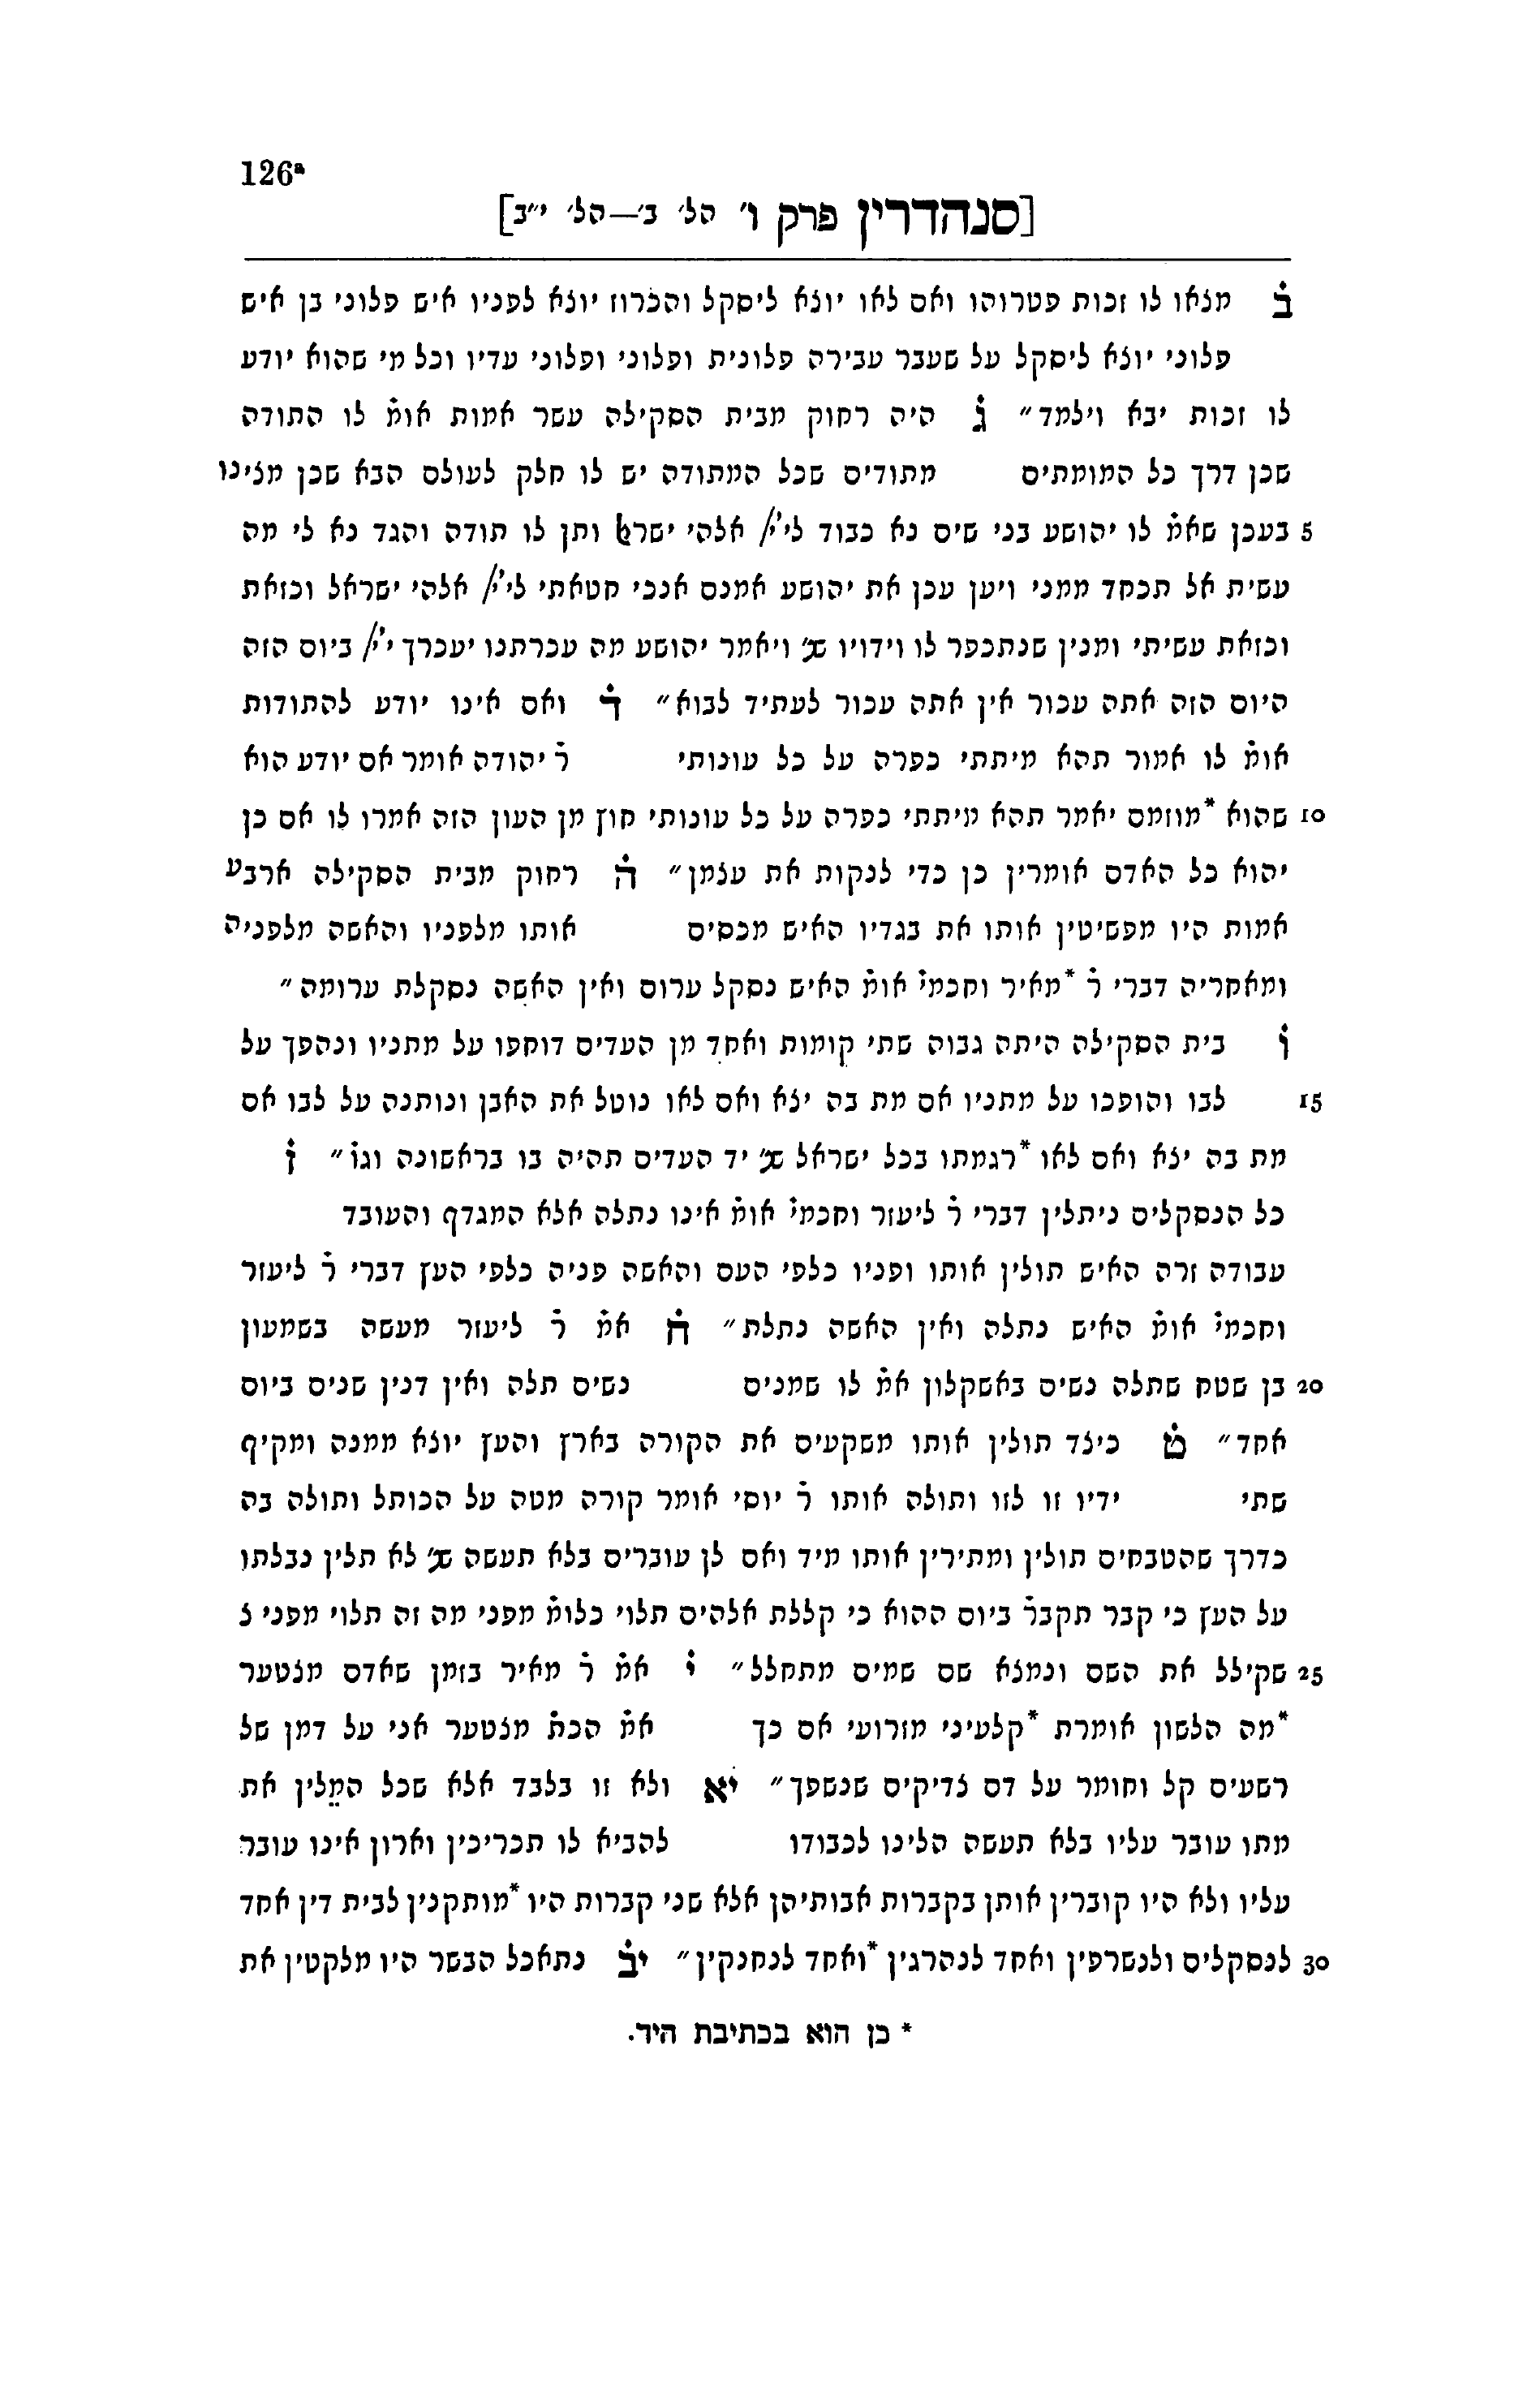 126ᵃ
[סנהדרין פרק ו' הל' ב'—הל' י"ב]
ב̇ מצאו לו זכות פטרוהו ואם לאו יוצא ליסקל והכרוז יוצא לפניו איש פלוני בן איש
פלוני יוצא ליסקל על שעבר עבירה פלונית ופלוני ופלוני עדיו וכל מי שהוא יודע
לו זכות יבא וילמד״ ג̇ היה רחוק מבית הסקילה עשר אמות אומ̇ לו התודה
שכן דרך כל המומתים מתודים שכל המתודה יש לו חלק לעולם הבא שכן מצינו
5 בעכן שאמ̇ לו יהושע בני שים נא כבוד לי'י/ אלהי ישרﭏ ותן לו תודה והגד נא לי מה
עשית אל תכחד ממני ויען עכן את יהושע אמנם אנכי חטאתי לי'י/ אלהי ישראל וכזאת
וכזאת עשיתי ומנין שנתכפר לו וידויו שנ' ויאמר יהושע מה עכרתנו יעכרך י'י/ ביום הזה
היום הזה אתה עכור אין אתה עכור לעתיד לבוא״ ד̇ ואם אינו יודע להתודות
אומ̇ לו אמור תהא מיתתי כפרה על כל עונותי ר̇ יהודה אומר אם יודע הוא
10 שהוא *מוזמם יאמר תהא מיתתי כפרה על כל עונותי חוץ מן העון הזה אמרו לו אם כן
יהוא כל האדם אומרין כן כדי לנקות את עצמן״ ה̇ רחוק מבית הסקילה ארבע
אמות היו מפשיטין אותו את בגדיו האיש מכסים אותו מלפניו והאשה מלפניה
ומאחריה דברי ר̇ *מאיר וחכמי̇ אומ̇ האיש נסקל ערום ואין האשה נסקלת ערומה״
ו̇ בית הסקילה היתה גבוה שתי קומות ואחד מן העדים דוחפו על מתניו ונהפך על
15 לבו והופכו על מתניו אם מת בה יצא ואם לאו נוטל את האבן ונותנה על לבו אם
מת בה יצא ואם לאו *רגמתו בכל ישראל שנ' יד העדים תהיה בו בראשונה וגו̇״ ז̇
כל הנסקלים ניתלין דברי ר̇ ליעזר וחכמי̇ אומ̇ אינו נתלה אלא המגדף והעובד
עבודה זרה האיש תולין אותו ופניו כלפי העם והאשה פניה כלפי העץ דברי ר̇ ליעזר
וחכמי̇ אומ̇ האיש נתלה ואין האשה נתלת״ ח̇ אמ̇ ר̇ ליעזר מעשה בשמעון
20 בן שטח שתלה נשים באשקלון אמ̇ לו שמנים נשים תלה ואין דנין שנים ביום
אחד״ ט̇ כיצד תולין אותו משקעים את הקורה בארץ והעץ יוצא ממנה ומקיף
שתי ידיו זו לזו ותולה אותו ר̇ יוסי אומר קורה מטה על הכותל ותולה בה
כדרך שהטבחים תולין ומתירין אותו מיד ואם לן עוברים בלא תעשה שנ' לא תלין נבלתו
על העץ כי קבר תקבר̇ ביום ההוא כי קללת אלהים תלוי כלומ̇ מפני מה זה תלוי מפני צ
25 שקילל את השם ונמצא שם שמים מתחלל״ י̇ אמ̇ ר̇ מאיר בזמן שאדם מצטער
*מה הלשון אומרת *קלעיני מזרועי אם כך אמ̇ הכת̇ מצטער אני על דמן של
רשעים קל וחומר על דם צדיקים שנשפך״ יא ולא זו בלבד אלא שכל המֵלין את
מתו עובר עליו בלא תעשה הלינו לכבודו להביא לו תכריכין וארון אינו עובר
עליו ולא היו קוברין אותן בקברות אבותיהן אלא שני קברות היו *מותקנין לבית דין אחד
30 לנסקלים ולנשרפין ואחד לנהרגין *ואחד לנחנקין״ יב̇ נתאכל הבשר היו מלקטין את
* כן הוא בכתיבת היד.